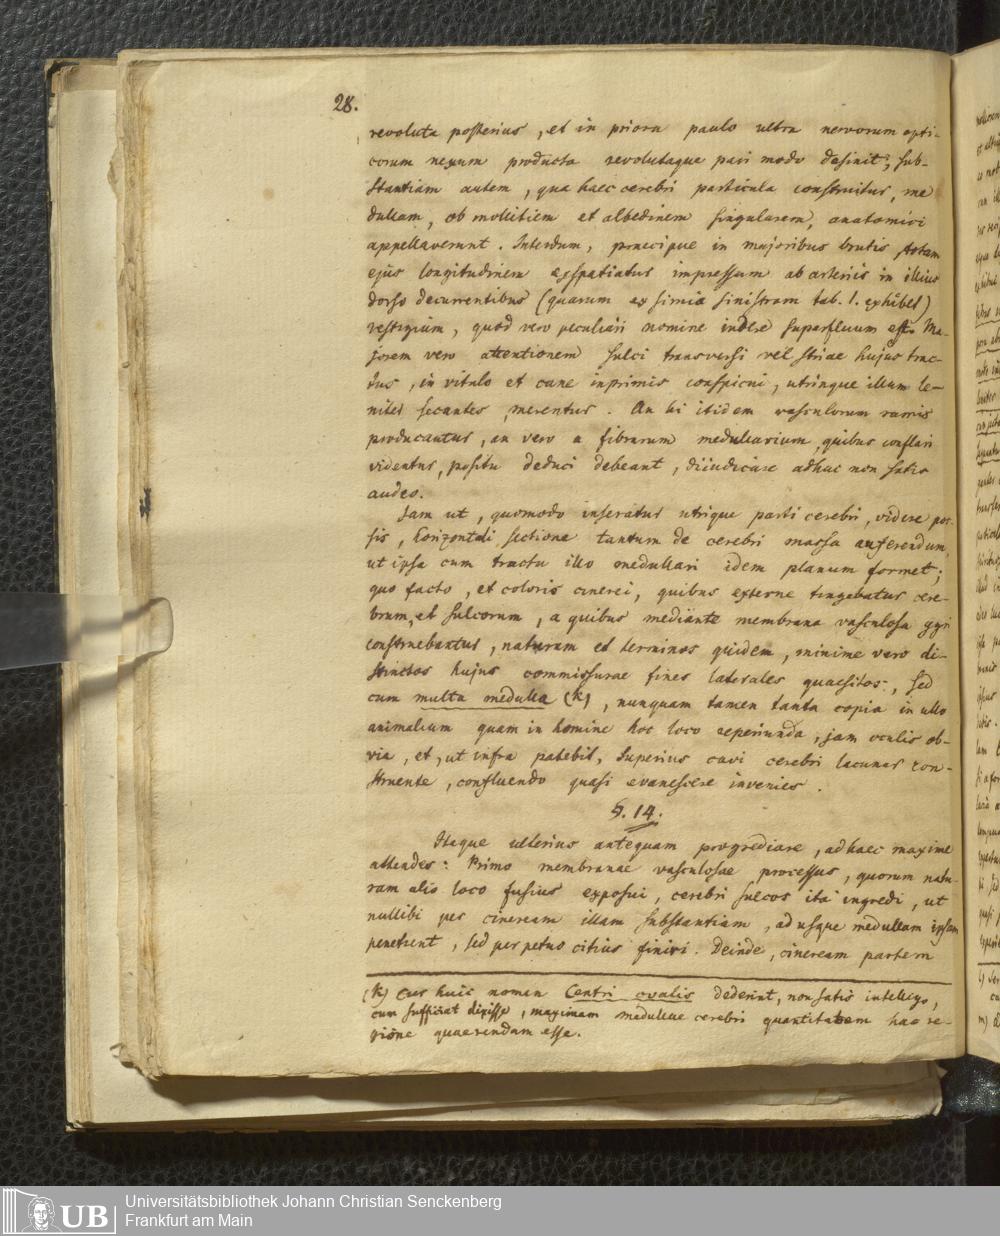 28.
revoluta posterius, et in priora paulo ultra nervorum opti-
corum nexum producta revolutaque pari modo desinit; sub-
stantiam autem, qua haec cerebri particula construitur, me
dullam, ob mollitiem et albedinem singularem, anatomici
appellaverunt. Interdum, praecipue in majoribus brutis totam
ejus longitudinem exspatiatur impressum ab arteriis in illius
dorso decurrentibus (quarum ex simia sinistram tab. 1. exhibet)
vestigium, quod vero peculiari nomine indere superfluum est. Ma-
jorem vero attentionem sulci transversi vel striae hujus trac-
tus, in vitulo et cane inprimis conspicui, utrinque illum le-
niter secantes, merentur. An hi itidem vasculorum ramis
producantur, an vero a fibrarum medullarium, quibus conflari
videntur, positu deduci debeant, diiudicare adhuc non satis
audeo.
Jam ut, quomodo inseratur utrique parti cerebri, videre pos-
sis, horizontali sectione tantum de cerebri massa auferendum,
ut ipsa cum tractu illo medullari idem planum formet;
quo facto, et coloris cinerei, quibus externe tingebatur cere-
brum, et sulcorum, a quibus mediante membrana vasculosa gyri
construebantur, naturam et terminos quidem, minime vero di-
stinctos hujus commissurae fines laterales quaesitos, sed
cum multa medulla (k), nunquam tamen tanta copia in ullo
animalium quam in homine hoc loco reperiunda, jam oculis ob-
via, et, ut infra patebit, superius cavi cerebri lacunar con-
struente, confluendo quasi evanescere invenies.
§. 14.
Itaque ulterius antequam progrediare, ad haec maxime
attendes: Primo membranae vasculosae processus, quorum natu-
ram alio loco fusius exposui, cerebri sulcos ita ingredi, ut
nullibi per cineream illam substantiam, ad usque medullam ipsam
penetrent, sed perpetuo citius finiri. Deinde, cineream partem
(k) Cur huic nomen Centri ovalis dederint, non satis intelligo,
cum sufficiat dixisse, maximam medullae cerebri quantitatem hac re-
gione quaerendam esse.
Universitätsbibliothek Johann Christian Senckenberg
Frankfurt am Main
UB